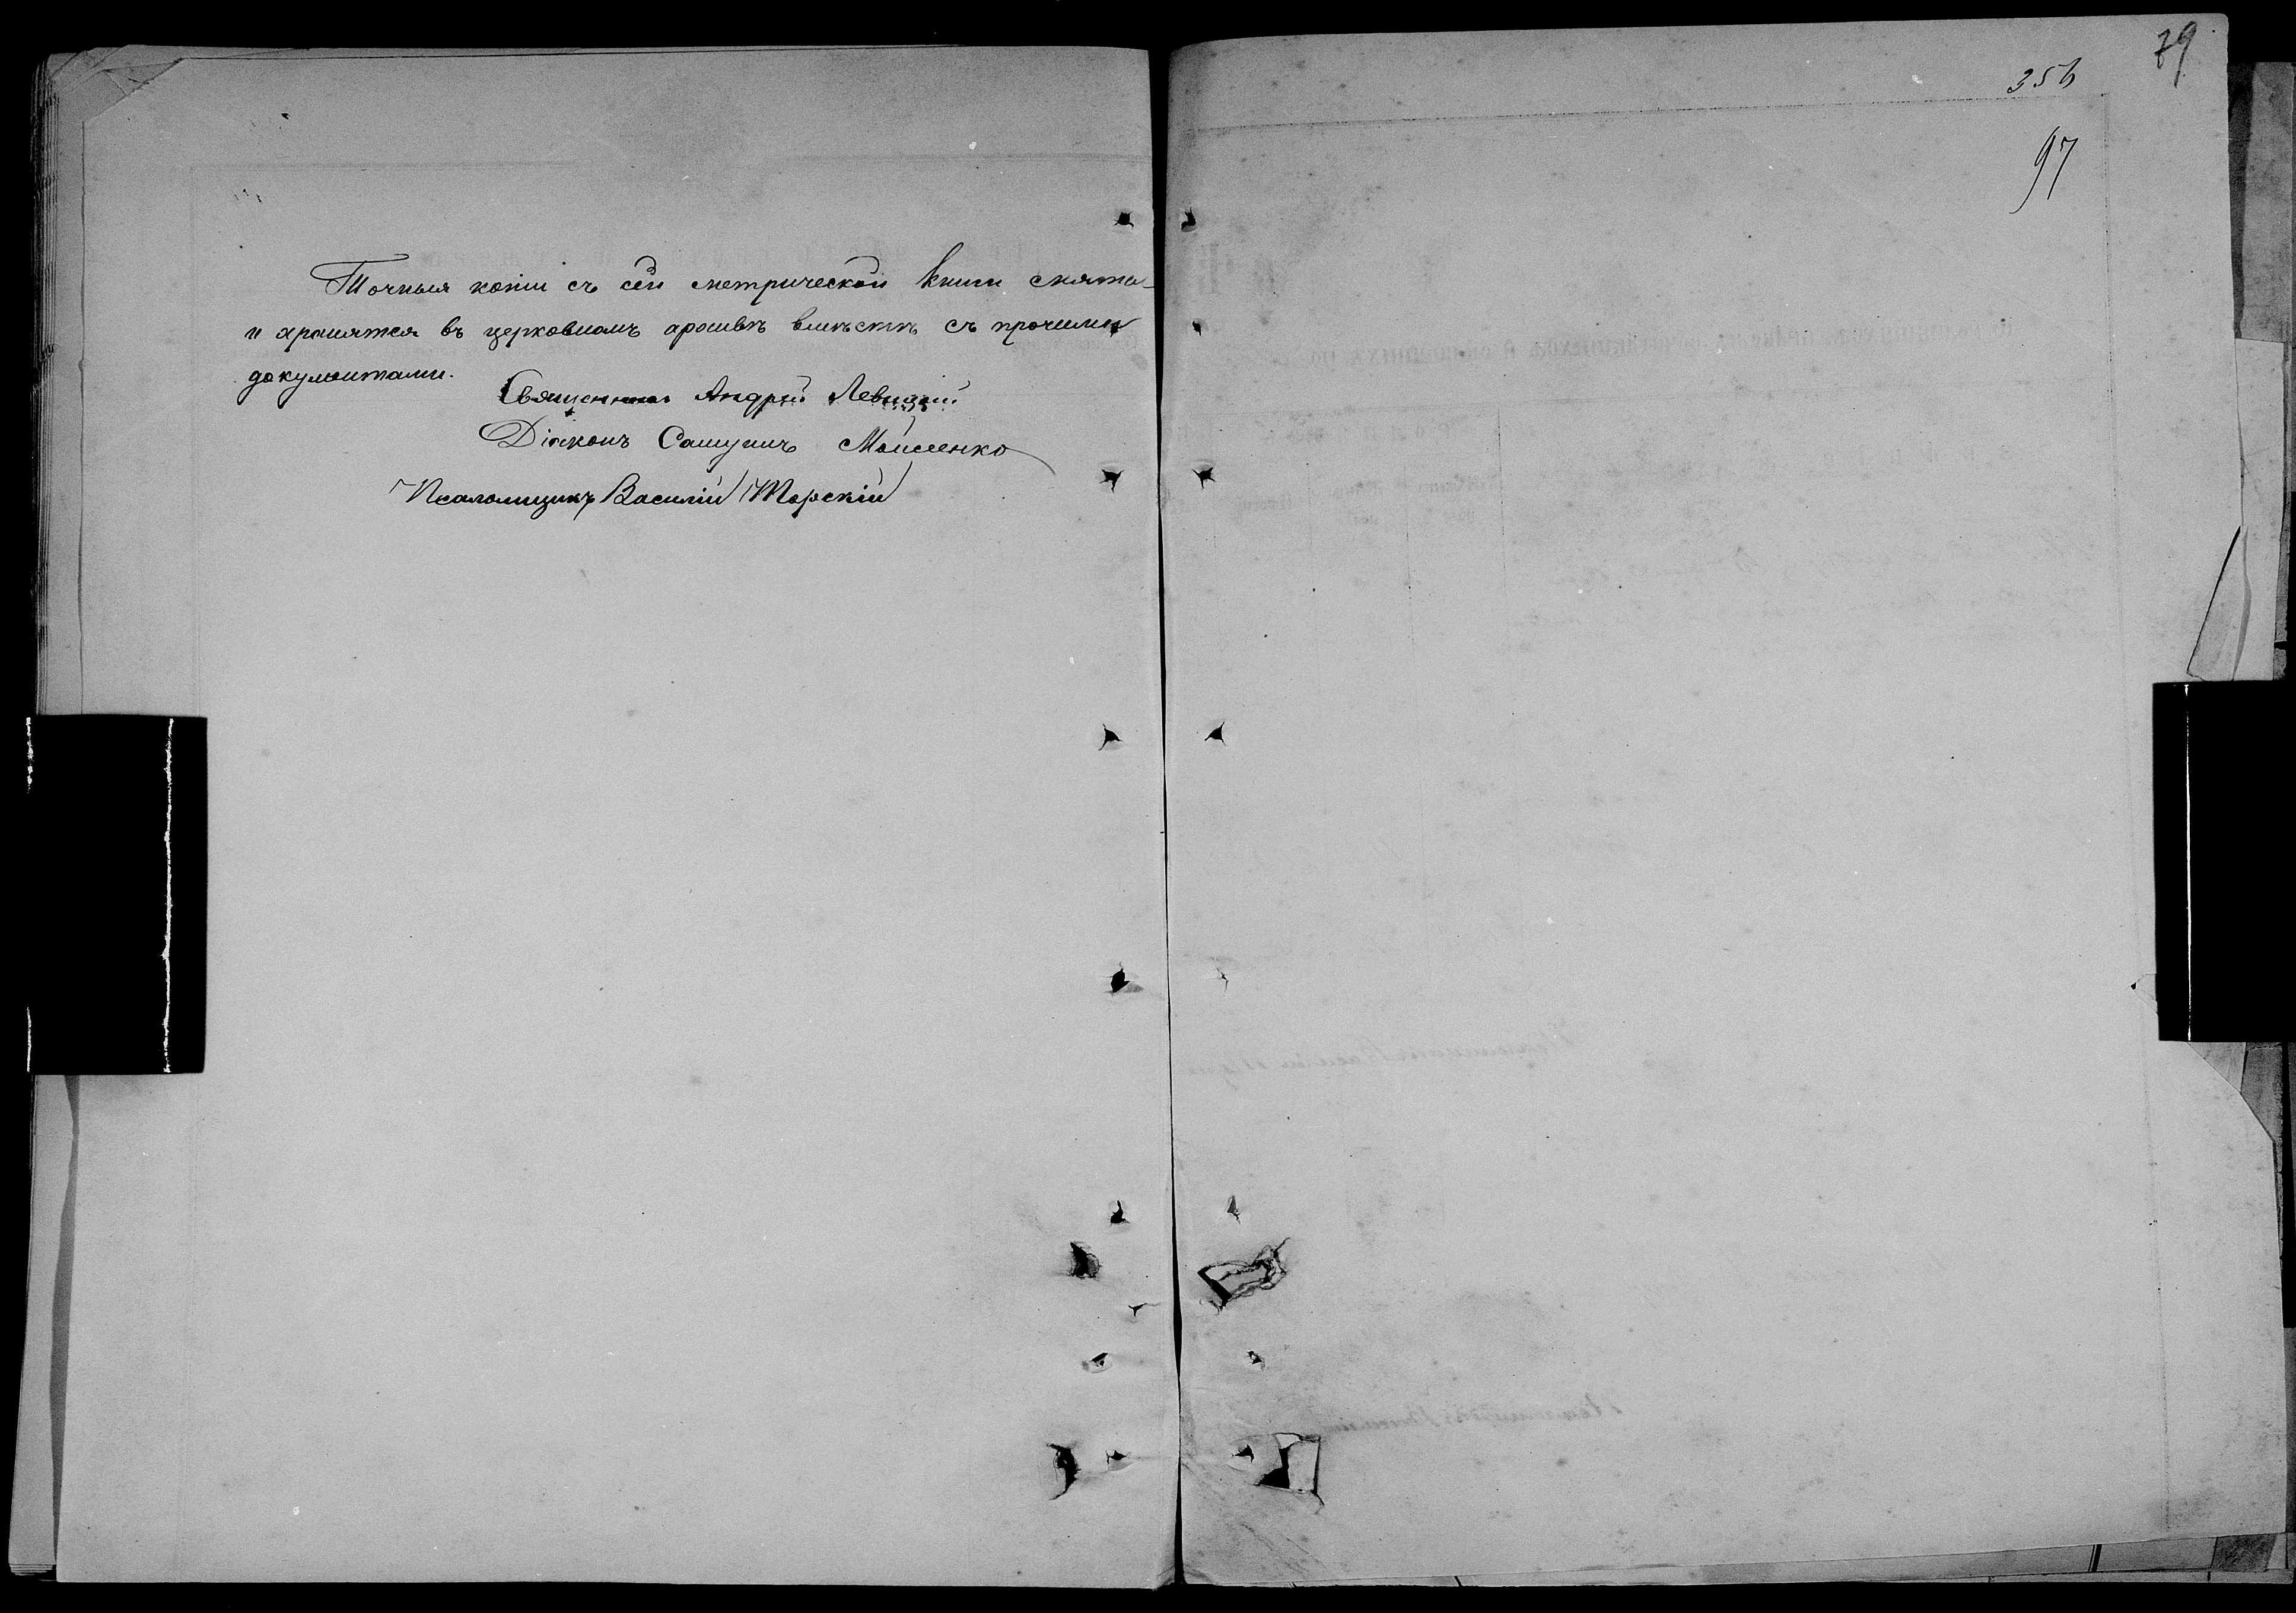 Точныя копіи съ сей метрической книги сняты
и хранятся въ церковномъ архивѣ вмѣстѣ съ прочими
документами.
Священникъ Андрей Левицкій
Діаконъ Самуилъ Моисеенко
Псаломщикъ Василій Торскій
79
356
97